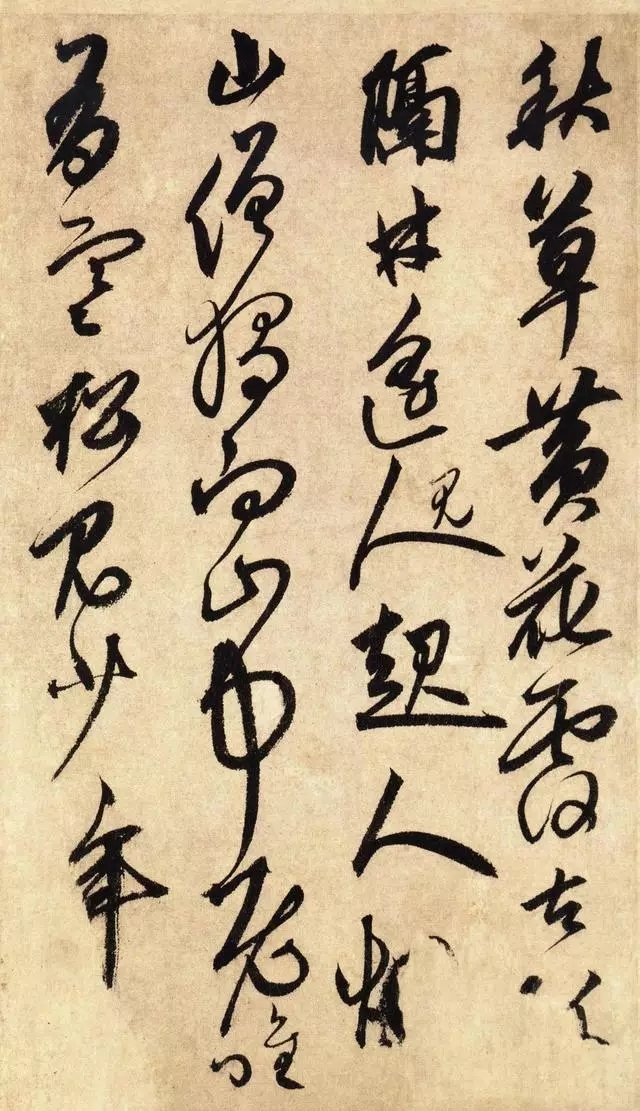 秋草黄花覆古阡
隔林遥見人起人烟
山僧獨向山中老唯
有寒松見少年